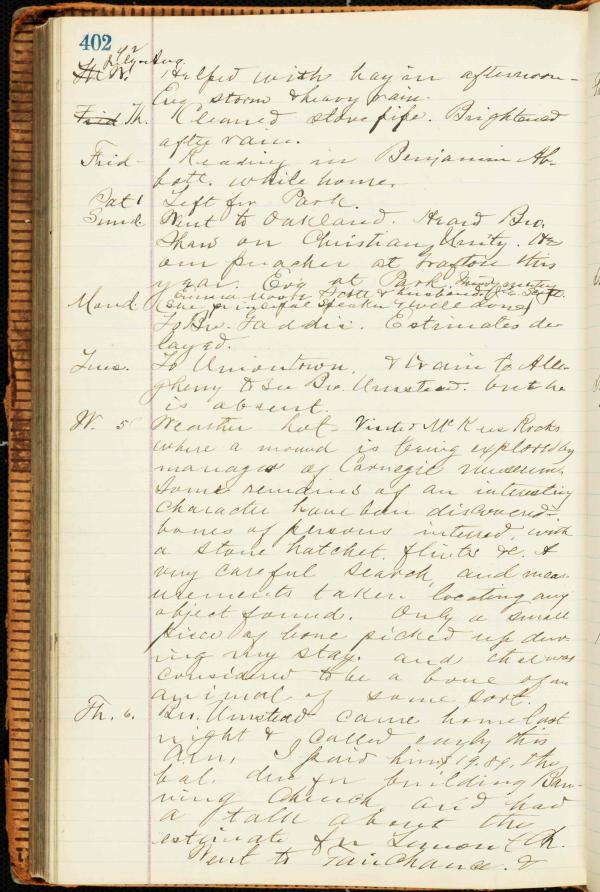 402
July & Aug.
W. Helped with hay in afternoon -
Eve, storm & heavy rain.
Frid Th. Kleaned stovepipe. Brightened
after rain.
Frid - Reading in Benjamin Ab-
bott. while home.
Sat 1 Left for Park.
Sund. Went to Oakland. Heard Bro.
Shaw on Christian Unity. He
our preacher at Grafton this
year. Eve at Park,
(Emma North Scott & husband
Mond (the principal speaker & well done)
To Bro. Gaddis. Estimates de
layed.
Tues. To Uniontown, & train to Alle-
gheny to see Bro. Umstead. but he
is absent.
W. 5 Weather hot. Visited McKees Rocks
where a mound is being explored by
manager of Carnegie Museum.
Some remains of an interesting
character have been discovered -
bones of persons interred, with
a stone hatchet, flints &c. A
very careful search, and meas-
urements taken, locating any
object found. Only a small
piece of bone picked up dur-
ing my stay. and that was
considered to be a bone of an
animal of some sort.
Th. 6. Bro. Umstead came home last
night & called early this
Am. I paid him $19.89, the
bal. due for building Ban-
ning Church, and had
a talk about the
estimate for Lemont Ch.
Went to Fairchance. &